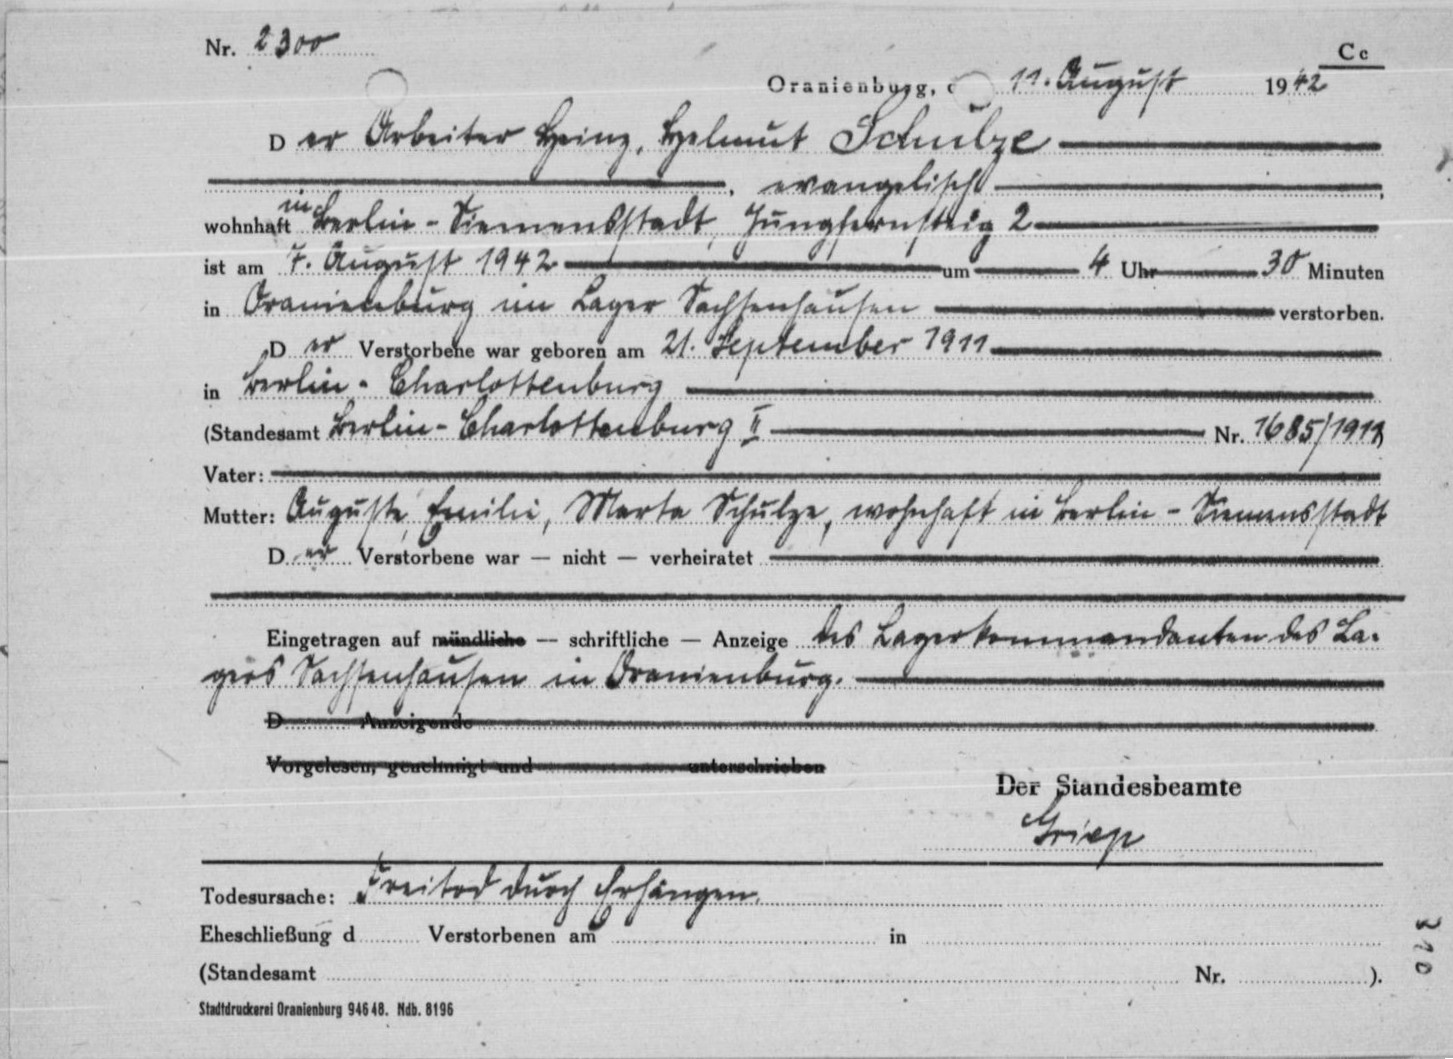 Nr. 2300
Cc
Oranienburg, d 11. August 1942
Der Arbeiter Heinz, Helmut Schulze
, evangelisch
wohnhaft in Berlin - Siemensstadt, Jungfernsteig 2
ist am 7. August 1942 um 4 Uhr 30 Minuten
in Oranienburg im Lager Sachsenhausen verstorben.
Der Verstorbene war geboren am 21. September 1911
in Berlin - Charlottenburg
(Standesamt Berlin - Charlottenburg II Nr. 1685/1911)
Vater:
Mutter: Auguste, Emilie, Marta Schulze, wohnhaft in Berlin - Siemensstadt
Der Verstorbene war — nicht — verheiratet
Eingetragen auf mündliche — schriftliche — Anzeige des Lagerkommandanten des La-
gers Sachsenhausen in Oranienburg.
D Anzeigende
Vorgelesen, genehmigt und unterschrieben
Der Standesbeamte
Griep
Todesursache: Freitod durch Erhängen.
Eheschließung d Verstorbenen am in
(Standesamt Nr. ).
Stadtdruckerei Oranienburg 946 48. Ndb. 8196
310